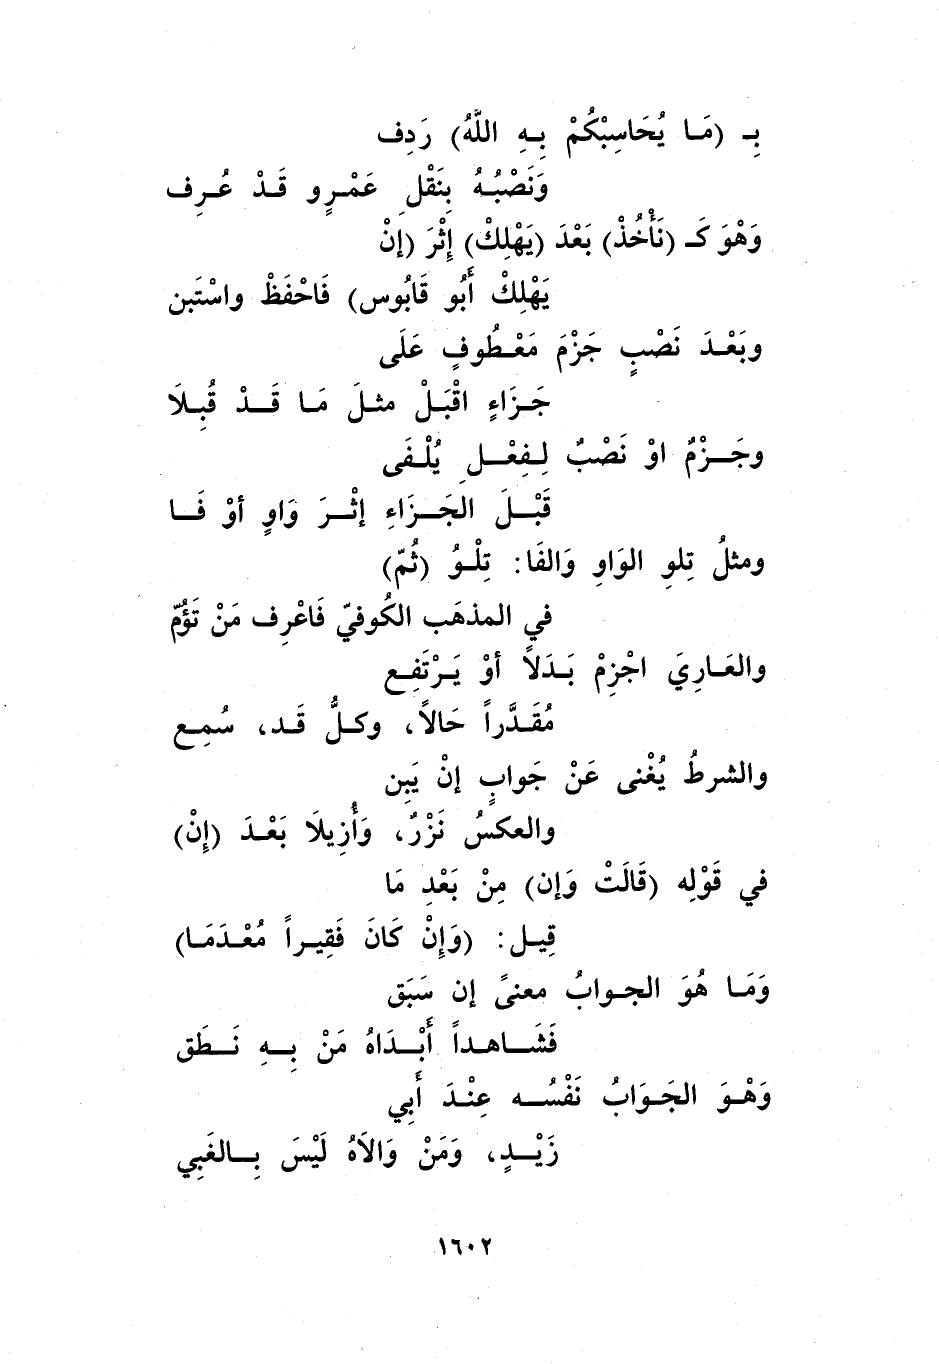 بِـ (مَـا يُحَاسِبْكُمْ بِـهِ اللَّهُ) رَدِف
وَنَصْبُـهُ بِنَقْلِ عَمْـرٍو قَـدْ عُـرِف
وَهْوَ كَـ (نَأْخُذْ) بَعْدَ (يَهْلِكْ) إِثْرَ (إنْ
يَهْلِكْ أَبُو قَابُوس) فَاحْفَظْ واسْتَبن
وبَعْـدَ نَصْبٍ جَزْمَ مَعْـطُوفٍ عَلَى
جَـزَاءٍ اقْبَـلْ مثـلَ مَـا قَـدْ قُبِـلَا
وجَـزْمٌ اوْ نَصْبٌ لِـفِعْـلٍ يُلْـفَى
قَبْـلَ الجَـزَاءِ إثْـرَ وَاوٍ أوْ فَـا
ومثلُ تِلوِ الوَاوِ وَالفَا: تِلْـوُ (ثُمّ)
في المذهَب الكُوفيّ فَاعْرِف مَنْ تَؤُمّ
والعَـارِيَ اجْزِمْ بَـدَلاً أوْ يَـرْتَفِـع
مُقَـدَّراً حَالاً، وكـلُّ قَـد، سُمِـع
والشرطُ يُغْنى عَنْ جَوابٍ إنْ يَبِن
والعكسُ نَزْرٌ، وَأُزِيلَا بَعْـدَ (إنْ)
في قَوْلِه (قَالَتْ وَإن) مِنْ بَعْدِ مَا
قِيـل: (وَإِنْ كَانَ فَقِيـراً مُعْـدَمَـا)
وَمَـا هُوَ الجـوابُ معنىً إن سَبَق
فَشَـاهـداً أَبْـدَاهُ مَنْ بِـهِ نَـطَق
وَهْـوَ الجَـوَابُ نَفْسُـه عِنْـدَ أَبِي
زَيْـدٍ، وَمَنْ وَالاَهُ لَيْسَ بِـالغَبِي
١٦٠٢